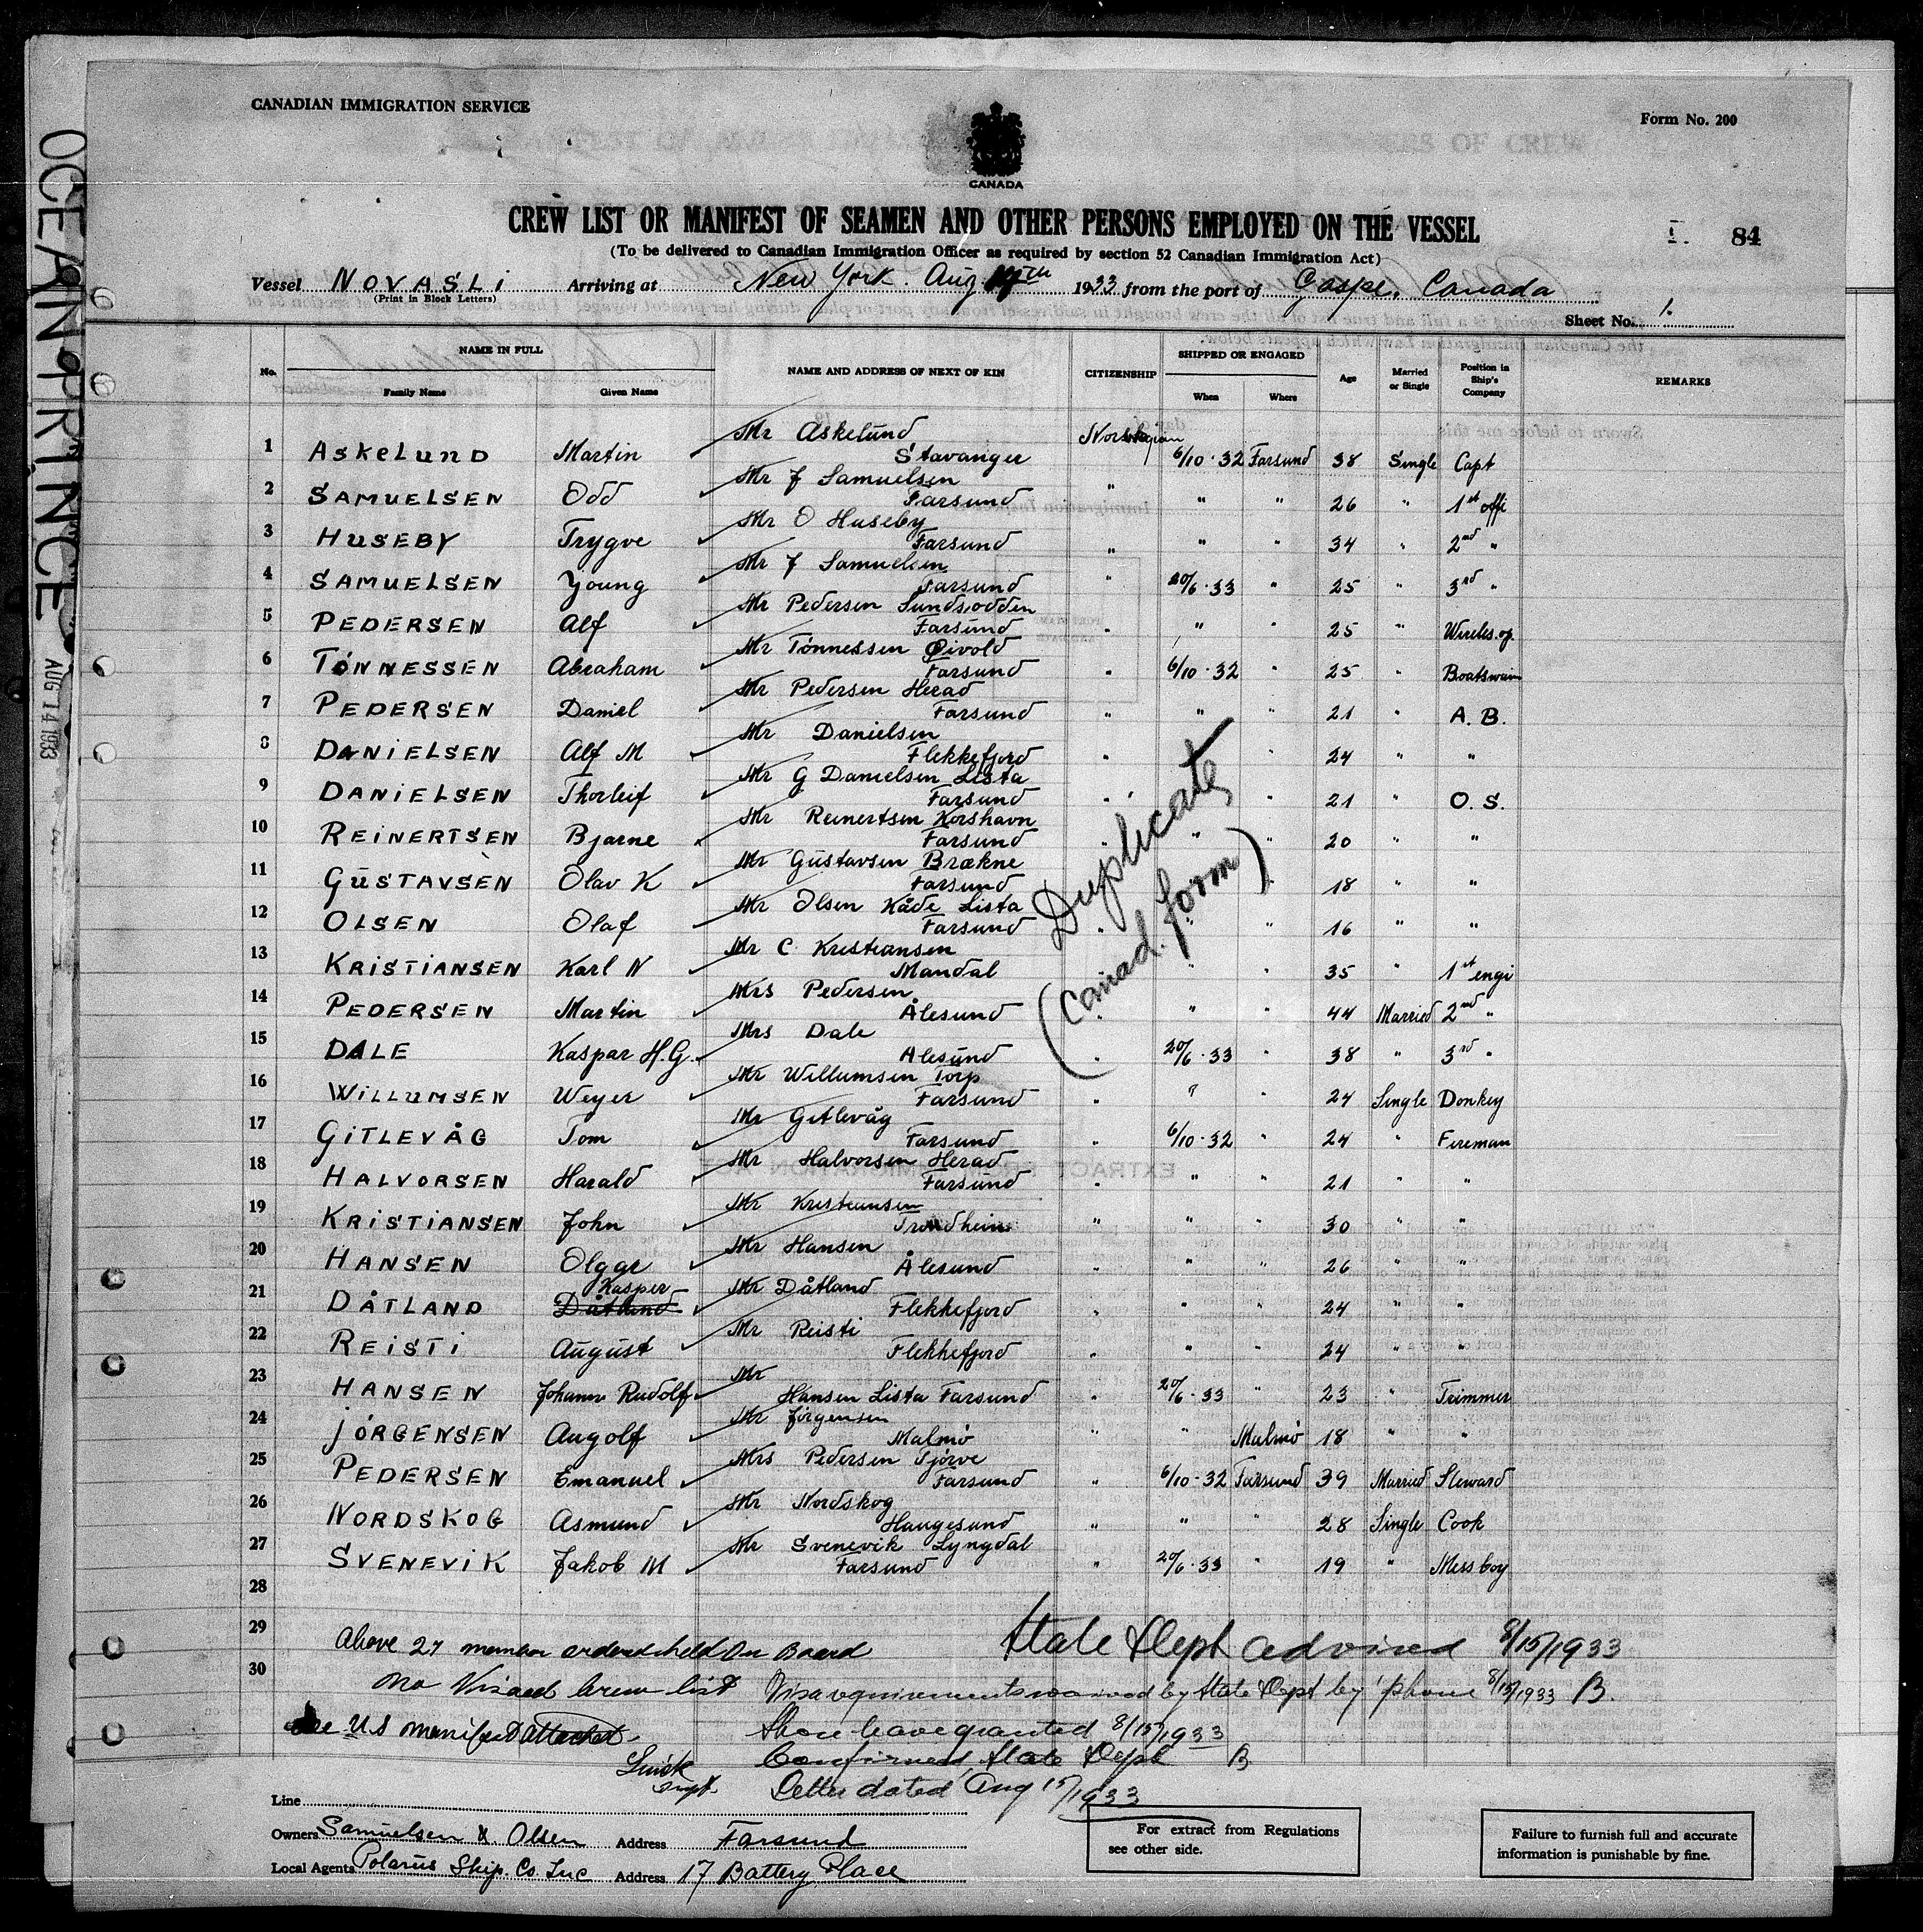 CANADIAN IMMIGRATION SERVICE
Form No. 200
CANADA
CREW LIST OR MANIFEST OF SEAMEN AND OTHER PERSONS EMPLOYED ON THE VESSEL
84
(To be delivered to Canadian Immigration Officer as required by section 52 Canadian Immigration Act)
Vessel NOVASLI Arriving at New York. Aug 1933 from the port of Gaspe, Canada
(Print in Block Letters)
Sheet No. 1.
OCEAN PRINCE AUG 14 1933
No. NAME IN FULL NAME AND ADDRESS OF NEXT OF KIN CITIZENSHIP SHIPPED OR ENGAGED Age Married or Single Position in Ship's Company REMARKS
Family Name Given Name When Where
1 ASKELUND Martin Mr Askelund Stavanger Norwegian 6/10-32 Farsund 38 Single Capt
2 SAMUELSEN Odd Mr J Samuelsen Farsund " " " 26 " 1st offi
3 HUSEBY Trygve Mr O Huseby Farsund " " " 34 " 2nd "
4 SAMUELSEN Young Mr J Samuelsen Farsund " 20/6-33 " 25 " 3rd "
5 PEDERSEN Alf Mr Pedersen Sundsodden Farsund " " " 25 " Wireles.op.
6 TØNNESSEN Abraham Mr Tønnessen Øivold Farsund " 6/10-32 " 25 " Boatswain
7 PEDERSEN Daniel Mr Pedersen Herad Farsund " " " 21 " A.B.
8 DANIELSEN Alf M Mr Danielsen Flekkefjord " " 24 " "
9 DANIELSEN Thorleif Mr G Danielsen Lista Farsund " " 21 " O.S.
10 REINERTSEN Bjarne Mr Reinertsen Korshavn Farsund " " " 20 " "
11 GUSTAVSEN Olav K Mr Gustavsen Brækne Farsund 18 " "
12 OLSEN Olaf Mr Olsen Kåde Lista Farsund " " 16 " "
13 KRISTIANSEN Karl N Mr C Kristiansen Mandal " " 35 " 1st engi
14 PEDERSEN Martin Mrs Pedersen Ålesund " " " 44 Married 2nd "
15 DALE Kaspar H.G. Mrs Dale Alesund " 20/6-33 " 38 " 3rd "
16 WILLUMSEN Weyer Mr Willumsen Torp Farsund " " " 24 Single Donkey
17 GITLEVÅG Tom Mr Gitlevåg Farsund " 6/10-32 " 24 " Fireman
18 HALVORSEN Harald Mr Halvorsen Herad Farsund " " " 21 " "
19 KRISTIANSEN John Mr Kristiansen Trondheim " " " 30 " "
20 HANSEN Olgar Mr Hansen Ålesund " " " 26 " "
21 DÅTLAND Kasper Dåtland Mr Dåtland Flekkefjord " " " 24 " "
22 REISTI August Mr Reisti Flekkefjord " " " 24 " "
23 HANSEN Johann Rudolf Mr Hansen Lista Farsund " 20/6-33 " 23 " Trimmer
24 JÖRGENSEN Augolf Mr Jörgensen Malmö " " Malmö 18 " "
25 PEDERSEN Emanuel Mrs Pedersen Tjörve Farsund " 6/10-32 Farsund 39 Married Steward
26 NORDSKOG Asmund Mr Nordskog Haugesund " " " 28 Single Cook
27 SVENEVIK Jakob M Mr Svenevik Lyngdal Farsund " 20/6-33 " 19 " Mess boy
28
29
30
Duplicate
(Canad. form)
Above 27 ordered held on Board
State Dept advised 8/15/1933
No Visaed Crew list
Visa requirements waived by State Dept by 'phone 8/15/1933 B.
See US manifest attached.
Shore leave granted 8/15/1933
Confirmed State Dept B
Letter dated Aug 15/1933
Line
Owners Samuelsen & Olsen Address Farsund
Local Agents Polarus Ship. Co. Inc Address 17 Battery Place
For extract from Regulations
see other side.
Failure to furnish full and accurate
information is punishable by fine.